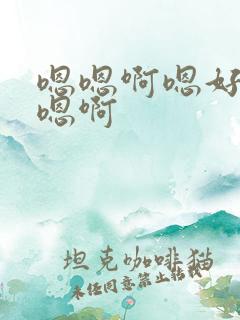 嗯嗯啊嗯好
嗯啊
坦克咖啡猫
未经同意禁止转载